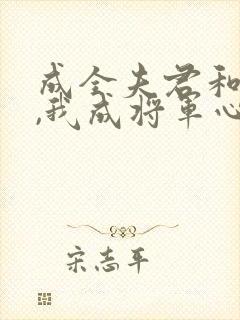 成全夫君和
,我成将军心
宋志平